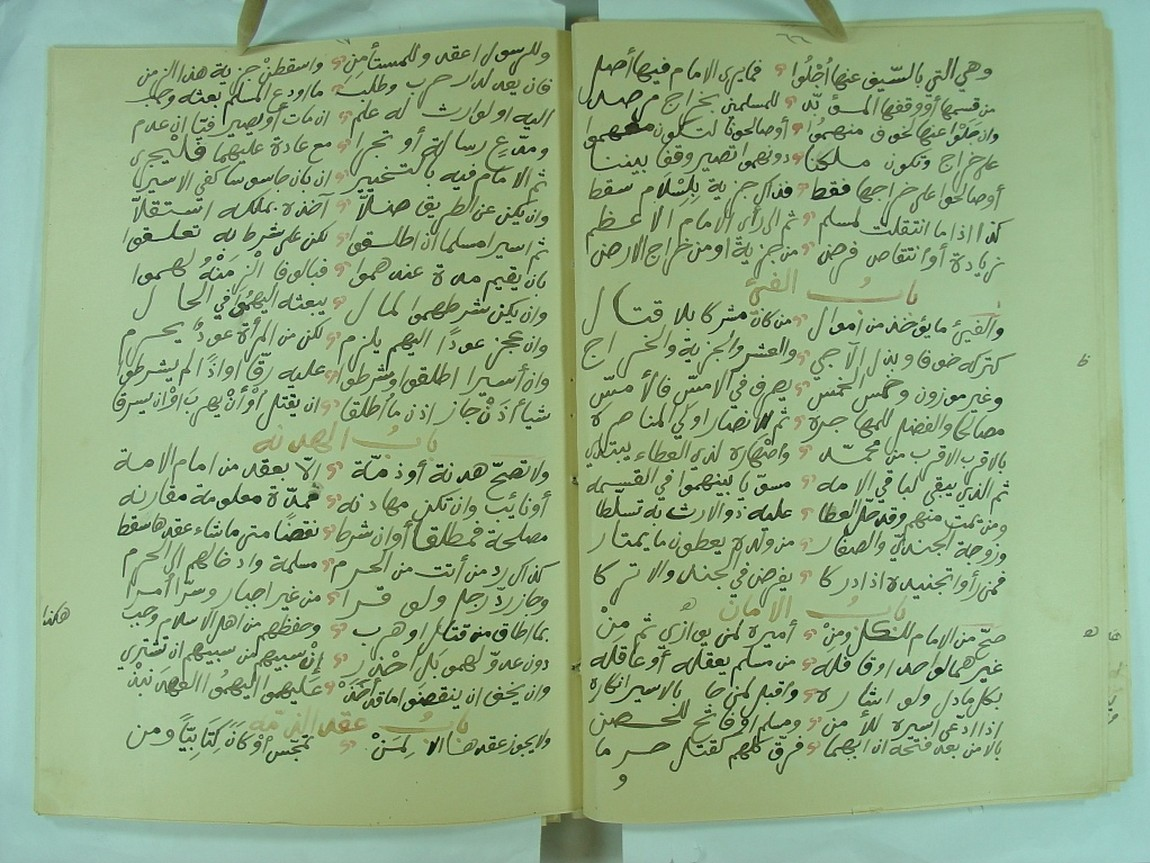 ٦٦
وهي التي بالسيف عنها أجلوا ۞ فما يرى الامام فيها أصل
من قسمها أو وقفها المسؤبد ۞ للمسلمين بخراج مرصد
وان جلوا عنها لخوف منهموا ۞ أو صالحونا لتكون معهموا
على خراج وتكون ملكنا ۞ دونهموا تصير وقفا بيننا
أو صالحوا على خراجها فقط ۞ فذاك جزية بإسلام سقط
كذا اذا ما انتقلت لمسلم ۞ ثم الى رأى الامام الاعظم
زيادة أو انتقاص فرض ۞ من جزية او من خراج الارض
باب الفئ
والفيئ ما يؤخذ من أموال ۞ من كان مشركا بلا قتال
كتركه خوفا وبذل الآجي ۞ والعشر والجزية والخراج
وغير موزون وخمس الخمس ۞ يصرف في الامس فالأمس
مصالحا والفضل للمهاجرة ۞ ثم للانصار اولى المناصرة
بالاقرب الاقرب من محمد ۞ واصهاره لذى العطاء يبتدي
ثم الذي يبقى لباقي الامه ۞ مسويا بينهموا في القسيمه
ومن يمت منهم وقد حل العطا ۞ عليه ذو الارث به تسلطا
وزوجة الجندي والصغار ۞ من ولده يعطون ما يمتار
فمن رأوا تجنيده اذا دركا ۞ يفرض في الجند والا تركا
باب الامان
صح من الامام للكل ومن ۞ أميره لمن يوازي ثم من
غيرهما لواحد او قافله ۞ من مسلم يعقله أو عاقله
بكل ما دل ولو اشاره ۞ واقبل لمن جا بالاسير انكاره
اذا ادعى اسيره للأمن ۞ ومسلم او فاتح للحصن
بالامن بعد فتحه ان ابهما ۞ فرق كلهم كقتل حرما
و
وللرسول اعقد وللمستأمن ۞ واسقطن جزية هذا الزمن
فان يعد لدار حرب وطلب ۞ ما اودع المسلم بعثه وجب
اليه او لوارث له علم ۞ ان مات أو يصير فيئا ان عدم
ومدع رسالة أو تجرا ۞ مع عادة عليهما فليجرى
ثم الامام فيه بالتخيير ۞ ان بان جاسوسا كفي الاسير
وان يكن عن الطريق ضلا ۞ آخذه بملكه استقلا
ثم اسير امسلما ان اطلقوا ۞ لكن على شرط به تعلقوا
بان يقيم مدة عندهموا ۞ فبالوفا الزمنه لهموا
وان يكن شرطهموا لمال ۞ يبعثه اليهموا في الحال
وان عجز عودا اليهم يلزم ۞ لكن من المرأة عود يحرم
وان أسيرا اطلقوا وشرطوا ۞ عليه رقا او اذا لم يشرطوا
شيأ أذن جاز اذن ما أطلقا ۞ ان يقتل أو أن يهرب او ان يسرقا
باب الهدنه
ولا تصح هدنة أو ذمة ۞ الا بعقد من امام الامة
أو نائب وان تكن مهادنه ۞ فمدة معلومة مقارنه
مصلحة فمطلقا أو ان شرط ۞ نقضا متى ما شاء عقدها سقط
كذاك رد من أتت من الحرم ۞ مسلمة وادخالهم الى الحرم
وجاز رد رجل ولو قرا ۞ من غير اجبار وسرا أمرا
هكذا
بما اطاق من قتال او هرب ۞ وحفظهم من اهل الاسلام وجب
دون عدو لهموا بل احذر ۞ ان سبيهم من سبيهم ان تشتري
وان يخف ان ينقضوا اماقد أخذ ۞ عليهموا اليهموا العهد نبذ
باب عقد الذمه
ولا يجوز عقدها الا لمن ۞ تمجس أو كان كتابيا ومن